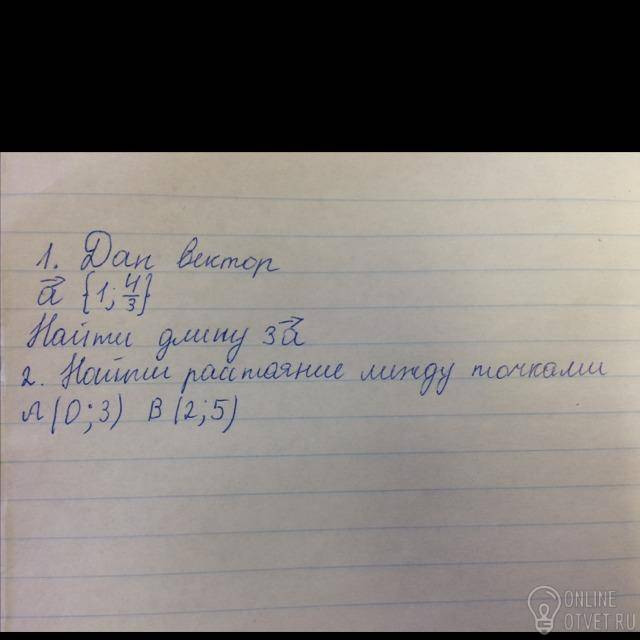 1. Дан вектор
a⃗ {1; 4/3}
Найти длину 3a⃗
2. Найти растаяние между точками
A(0;3) B(2;5)
ONLINE
OTVET.RU